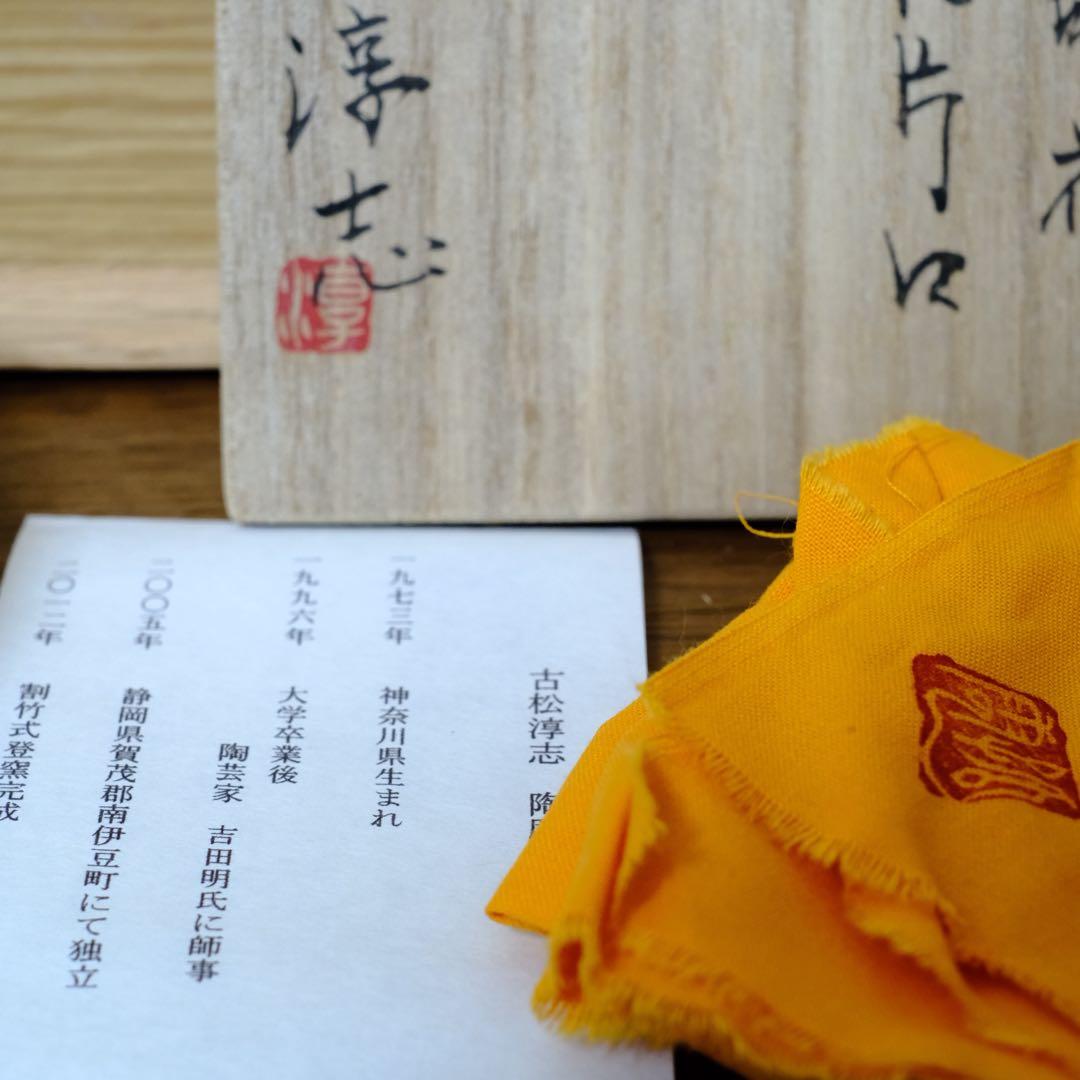 片口
淳志
淳
古松淳志
一九七三年　神奈川県生まれ
一九九六年　大学卒業後
陶芸家　吉田明氏に師事
二〇〇五年　静岡県賀茂郡南伊豆町にて独立
二〇一二年　割竹式登窯完成